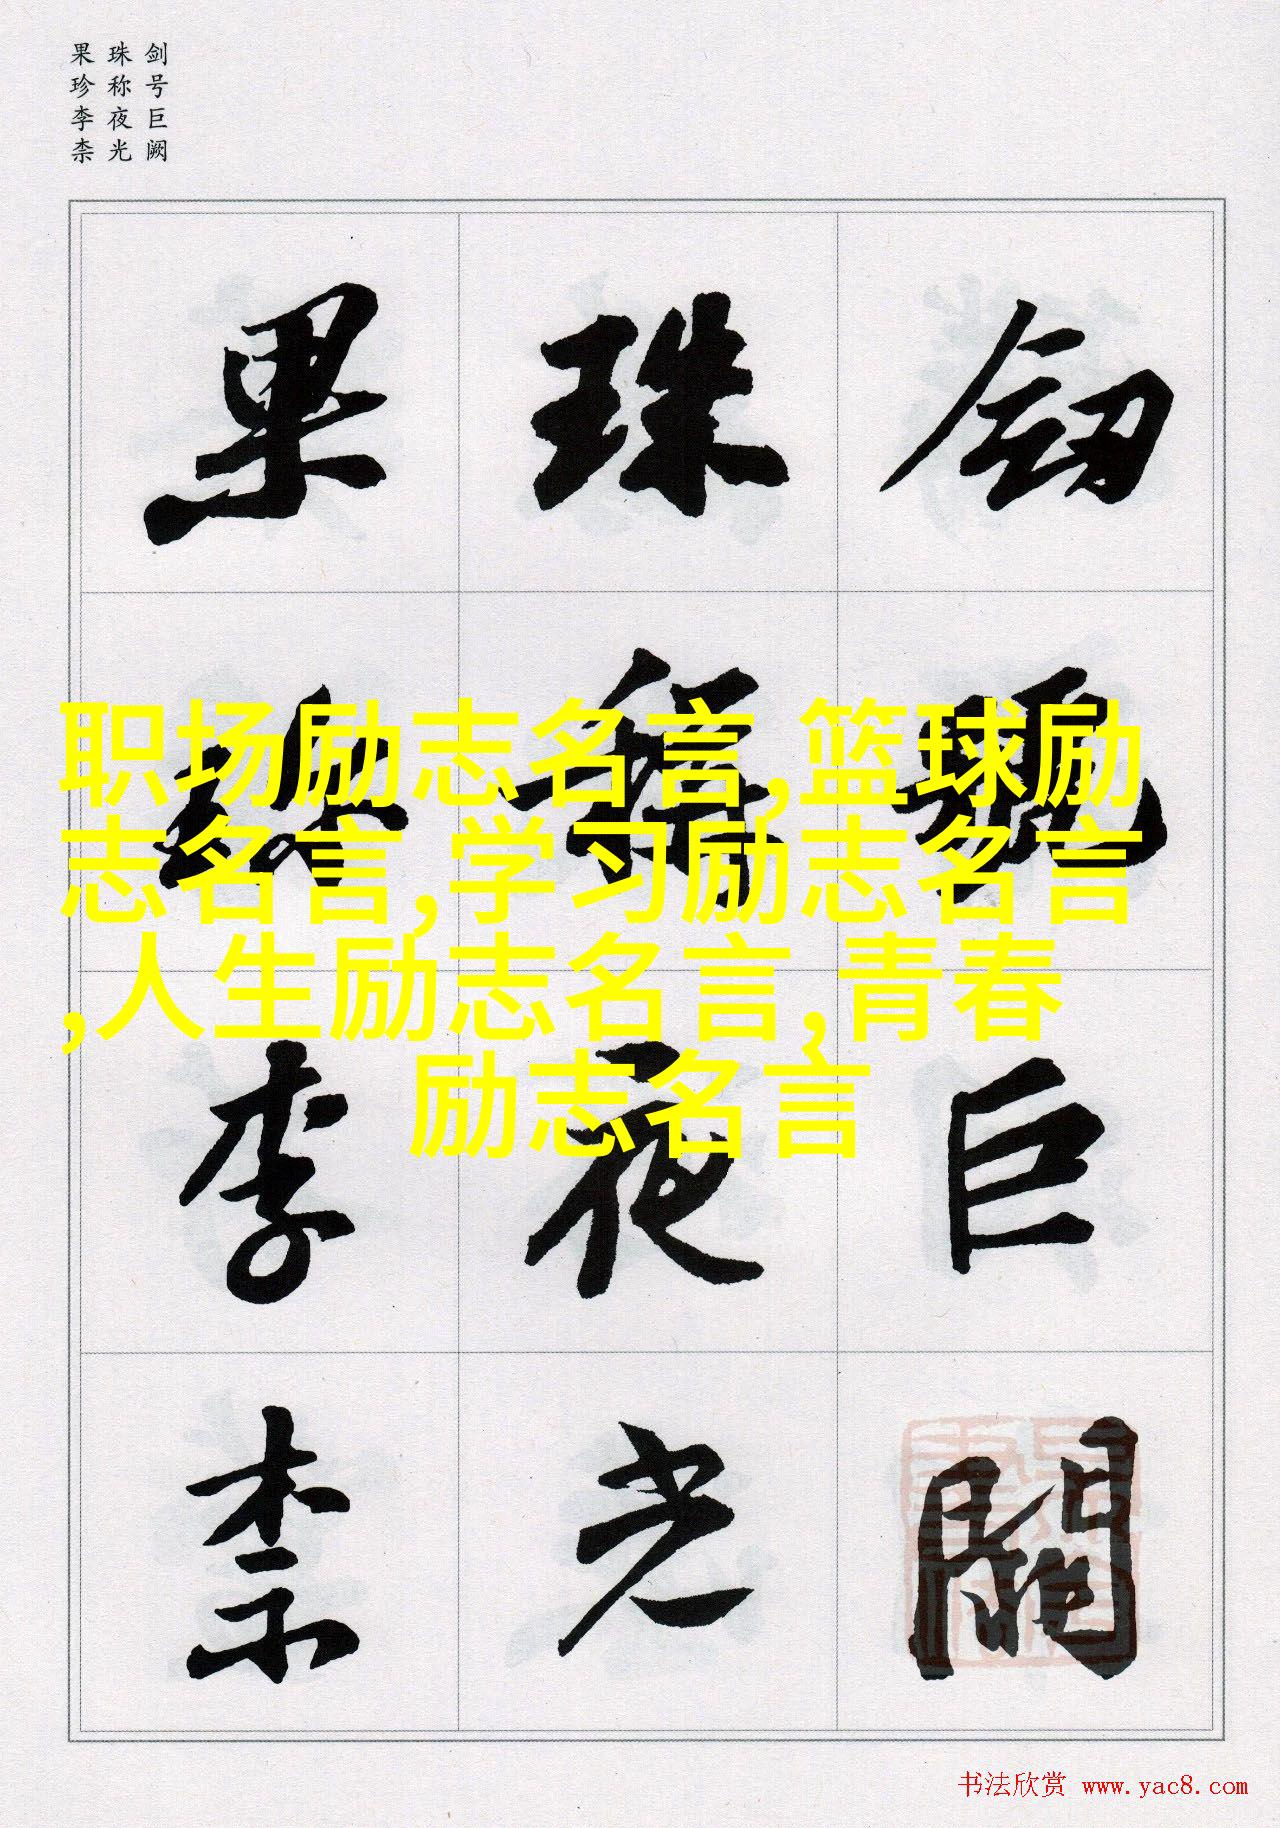 剑号巨阙
珠称夜光
果珍李柰
剑号巨阙
珠称夜光
果珍李柰
职场励志名言,篮球励
志名言,学习励志名言
,人生励志名言,青春
励志名言
书法欣赏 www.yac8.com